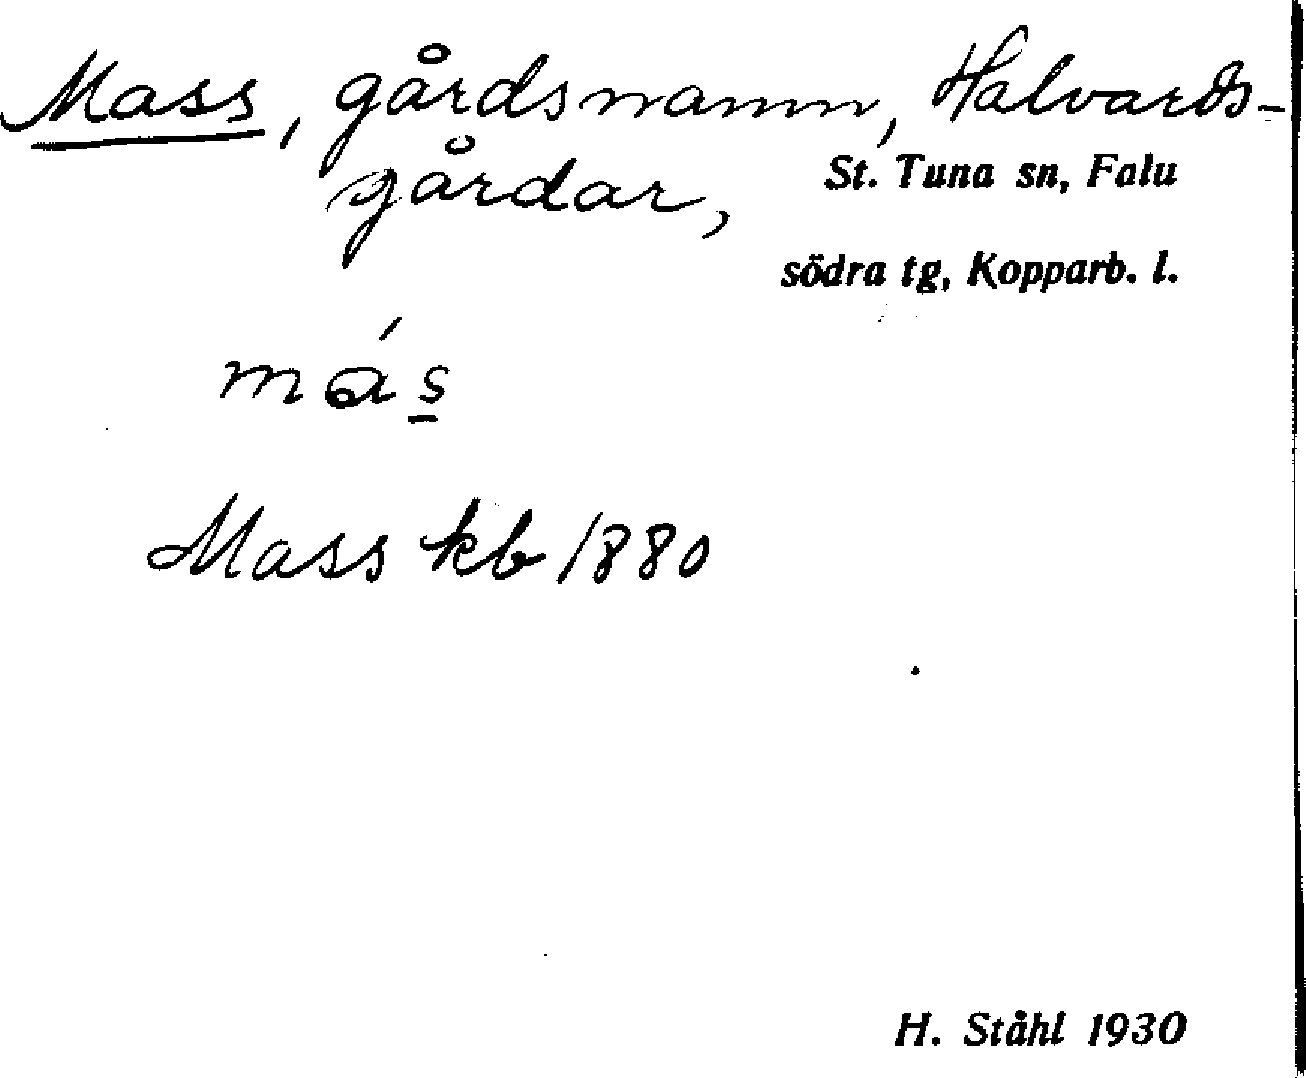 Mass, gårdsnamn, Halvards-
gårdar, St. Tuna sn, Falu
södra tg, Kopparb. l.
más
Mass kb 1880
H. Ståhl 1930